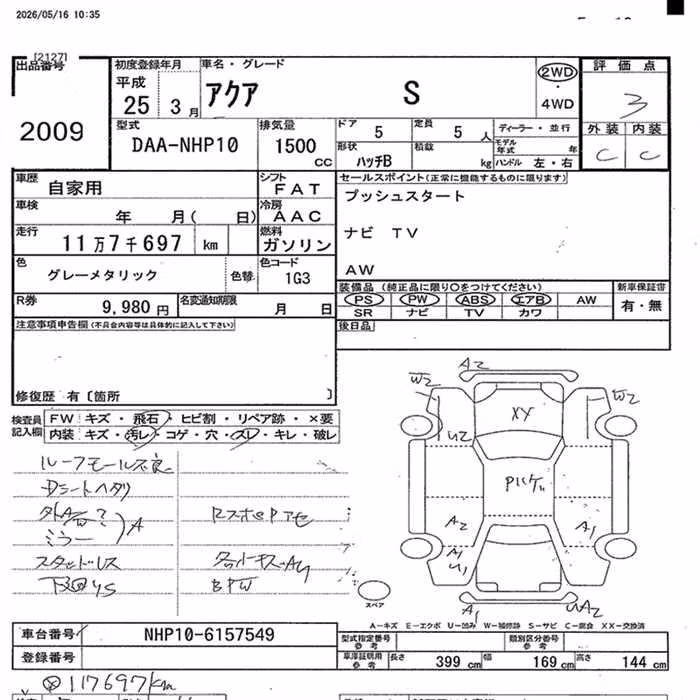 2026/05/16 10:35
[2127]
出品番号 初度登録年月 車名・グレード 2WD・4WD 評価点
平成 25 3月 アクア S 3
外装 内装
C C
2009
型式 排気量 ドア 5 定員 5人 ディーラー・並行
DAA-NHP10 1500cc モデル年式 年
形状 ハッチB 積載 kg ハンドル 左・右
車歴 自家用 シフト FAT セールスポイント(正常に機能するものに限ります)
プッシュスタート
車検 年 月( 日) 冷房 AAC
ナビ TV
走行 11万7千697 km 燃料 ガソリン
AW
色 グレーメタリック 色替 色コード 1G3
装備品(純正品に限り○をつけてください) 新車保証書
PS PW ABS エアB AW 有・無
SR ナビ TV カワ
R券 9,980円 名変通知期限 月 日
後日品
注意事項申告欄(不具合内容等は具体的に記入して下さい)
修復歴 有〔箇所 〕
検査員記入欄 FW キズ・飛石・ヒビ割・リペア跡・×要
内装 キズ・汚レ・コゲ・穴・スレ・キレ・破レ
ルーフモール不良
ミラー A
スタッドレス
BPW
A2
W2 W2
XY
U2
A2 A1
A1
U1
A1 UA2
スペア
A-キズ E-エクボ U-凹み W-補修跡 S-サビ C-腐食 XX-交換済
車台番号 NHP10-6157549 型式指定番号 参考 類別区分番号 参考
登録番号 車庫証明用 参考 長さ 399cm 幅 169cm 高さ 144cm
117697km